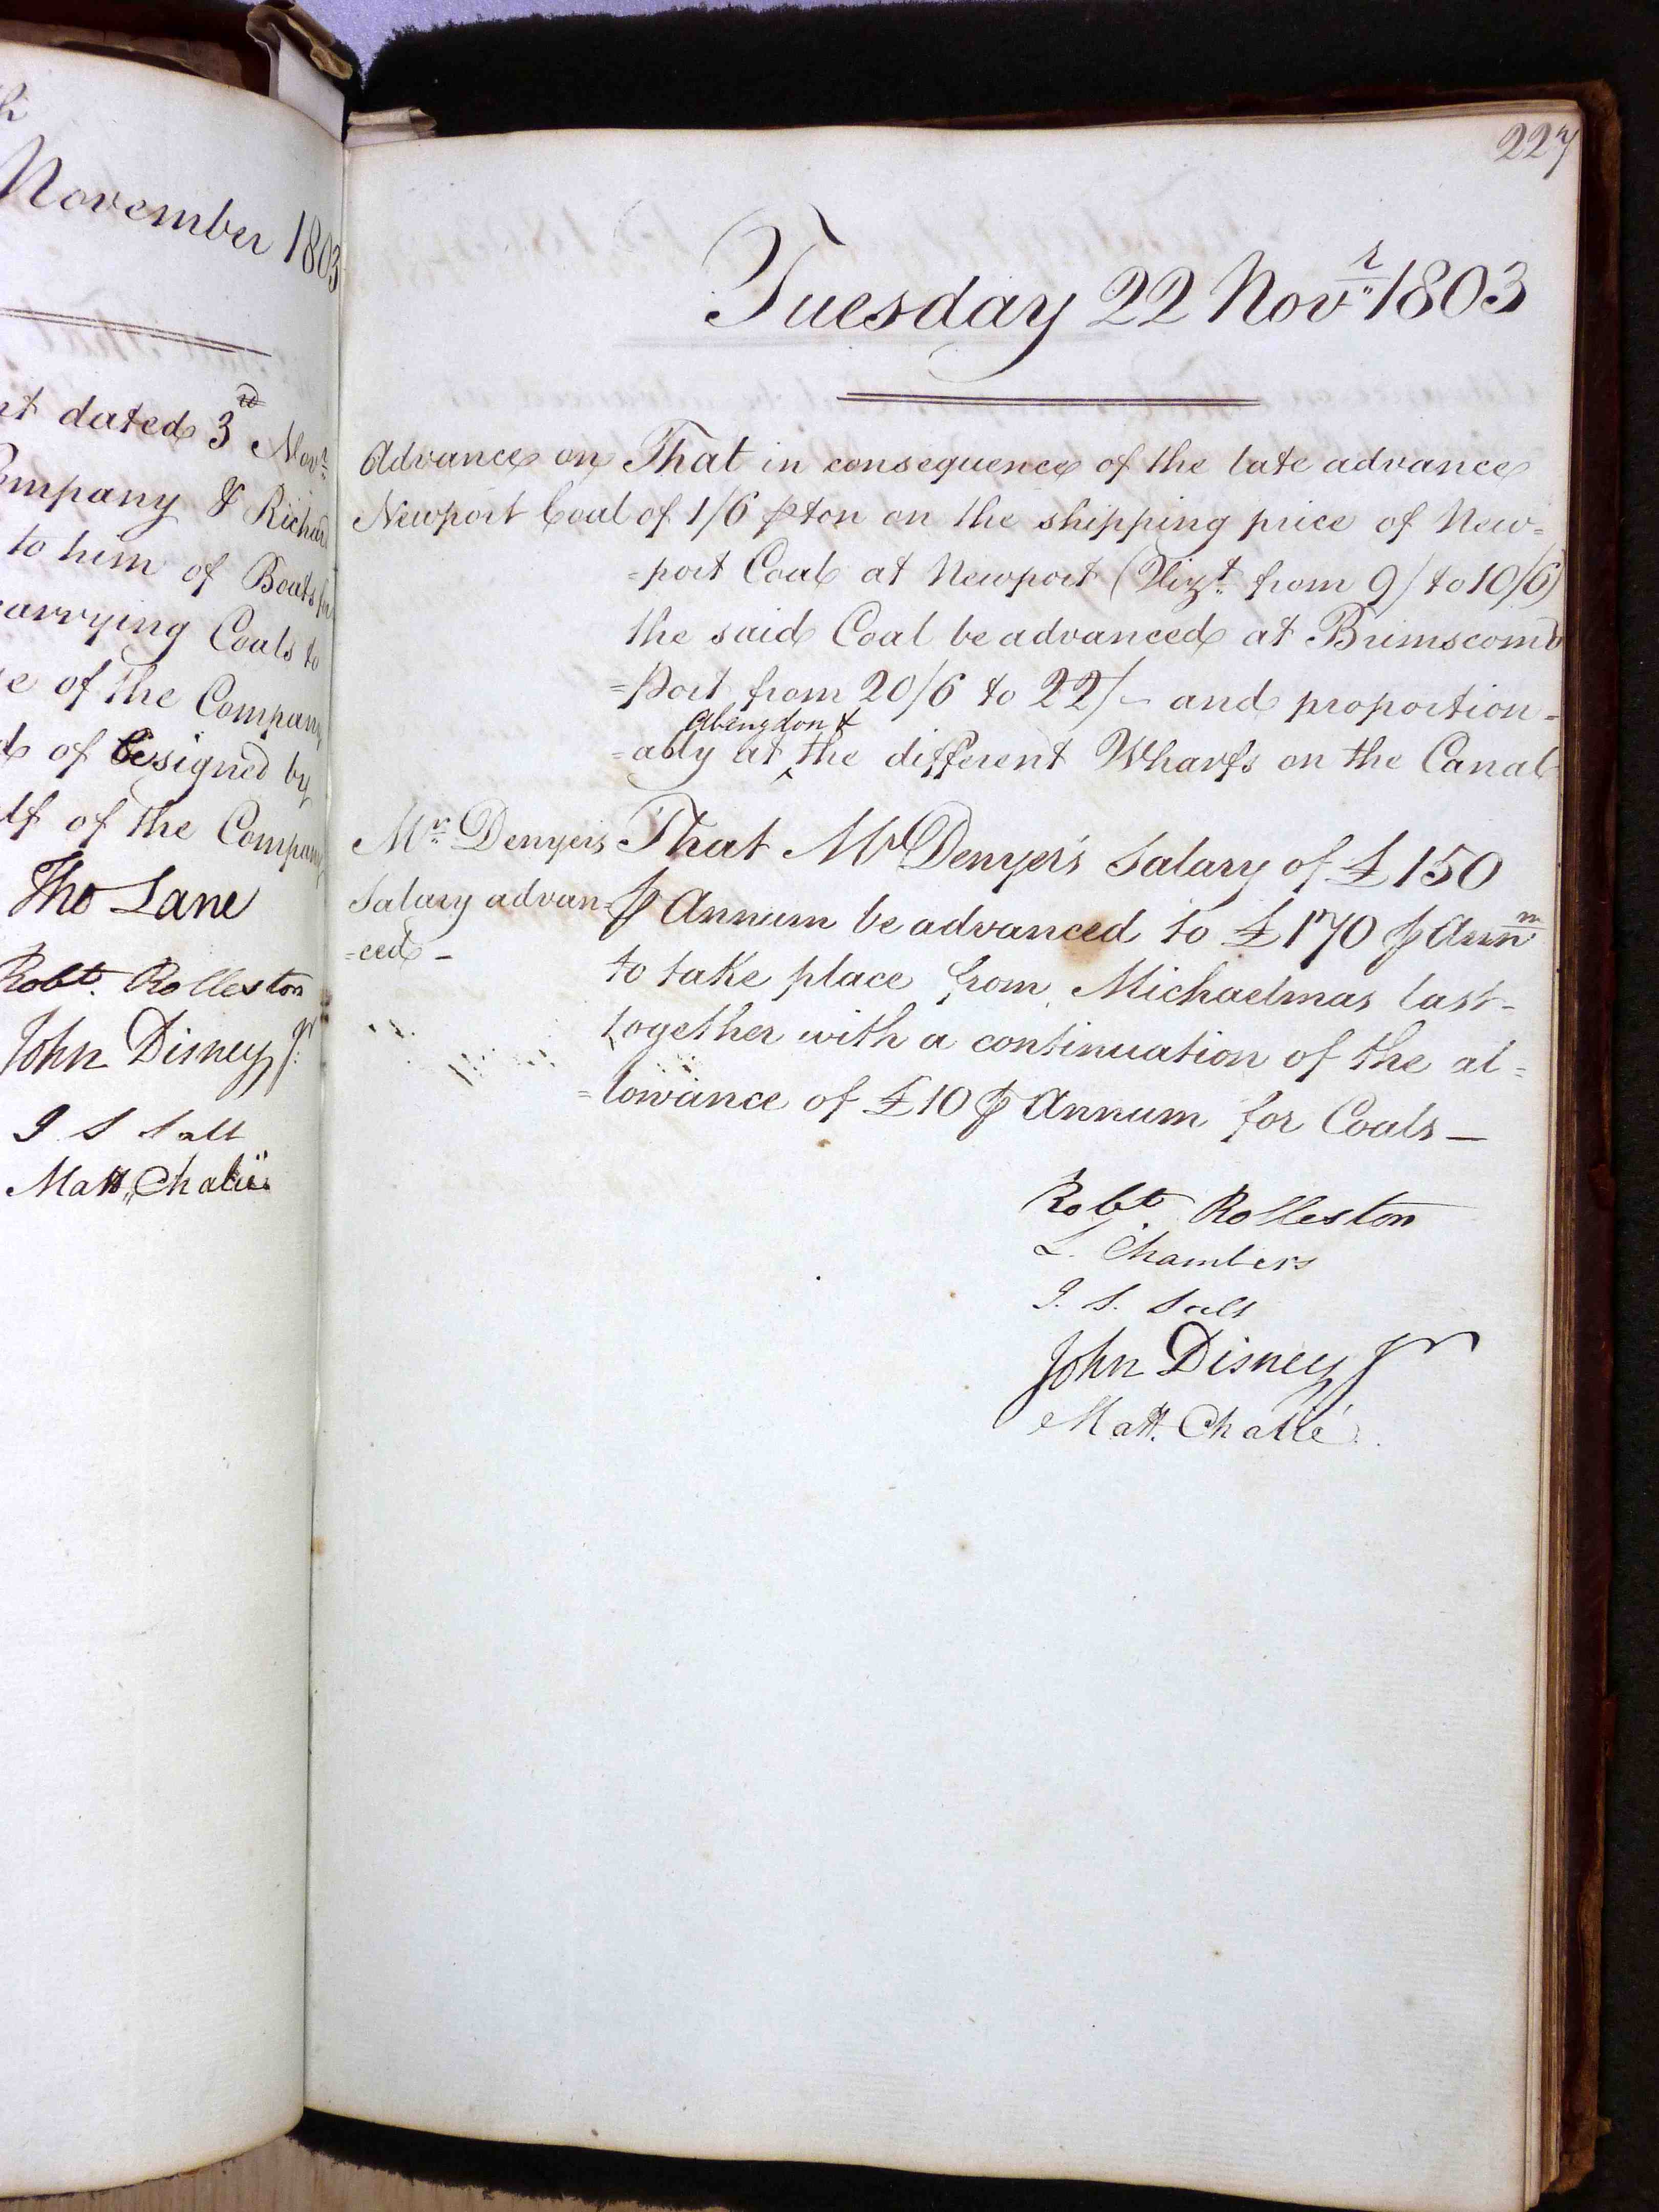 h
November 1803
nt dated 3rd Novr
ompany & Richard
to him of Boats for
carrying Coals to
e of the Company
d of be signed by
lf of the Company
Tho Lane
Robt. Rolleston
John Disney Jr.
J S Salt
Matt. Chalié
227
Tuesday 22 Novr. 1803
Advance on
Newport Coal
That in consequence of the late advance
of 1/6 ⅌ ton on the shipping price of New=
=port Coal at Newport (Vizt. from 9/ to 10/6)
the said Coal be advanced at Brimscomb
=Port from 20/6 to 22/- and proportion=
=ably at Abingdon & the different Wharfs on the Canal
Mr. Denyers
Salary advan=
=ced -
That Mr Denyer's Salary of £150
⅌ Annum be advanced to £170 ⅌ Annm
to take place from Michaelmas last-
together with a continuation of the al=
=lowance of £10 ⅌ Annum for Coals —
Robt Rolleston
L. Chambers
J. S. Salt
John Disney Jr
Matt. Chalié.